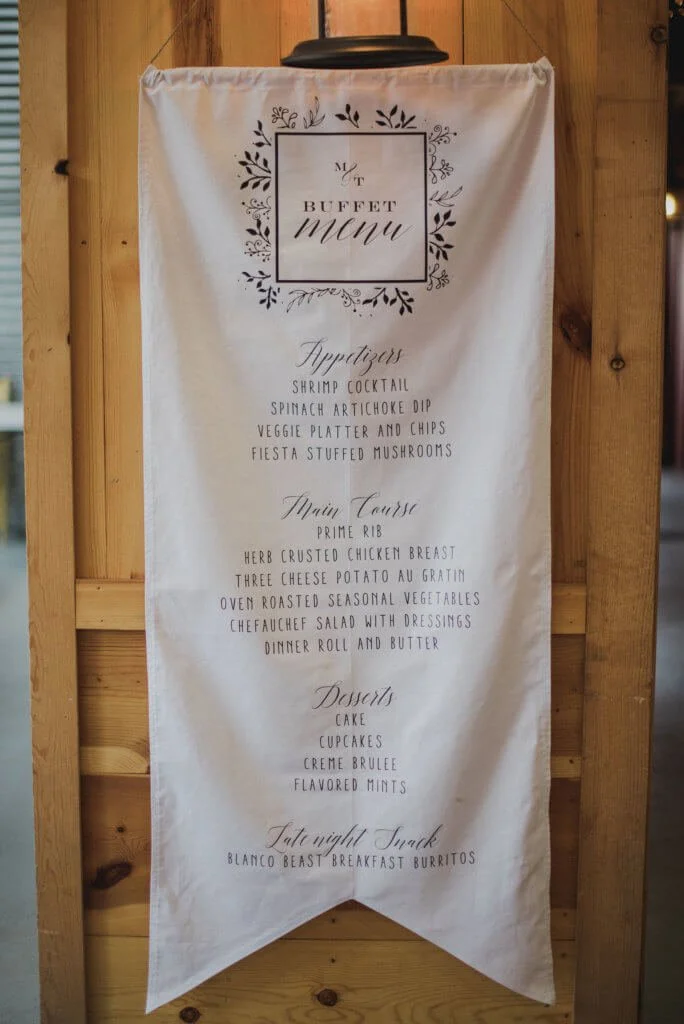 M & T
BUFFET
menu
Appetizers
SHRIMP COCKTAIL
SPINACH ARTICHOKE DIP
VEGGIE PLATTER AND CHIPS
FIESTA STUFFED MUSHROOMS
Main Course
PRIME RIB
HERB CRUSTED CHICKEN BREAST
THREE CHEESE POTATO AU GRATIN
OVEN ROASTED SEASONAL VEGETABLES
CHEFAUCHEF SALAD WITH DRESSINGS
DINNER ROLL AND BUTTER
Desserts
CAKE
CUPCAKES
CREME BRULEE
FLAVORED MINTS
Late night Snack
BLANCO BEAST BREAKFAST BURRITOS